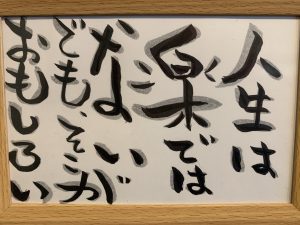 人生は
楽では
ないが
でも、そこが
おもしろい